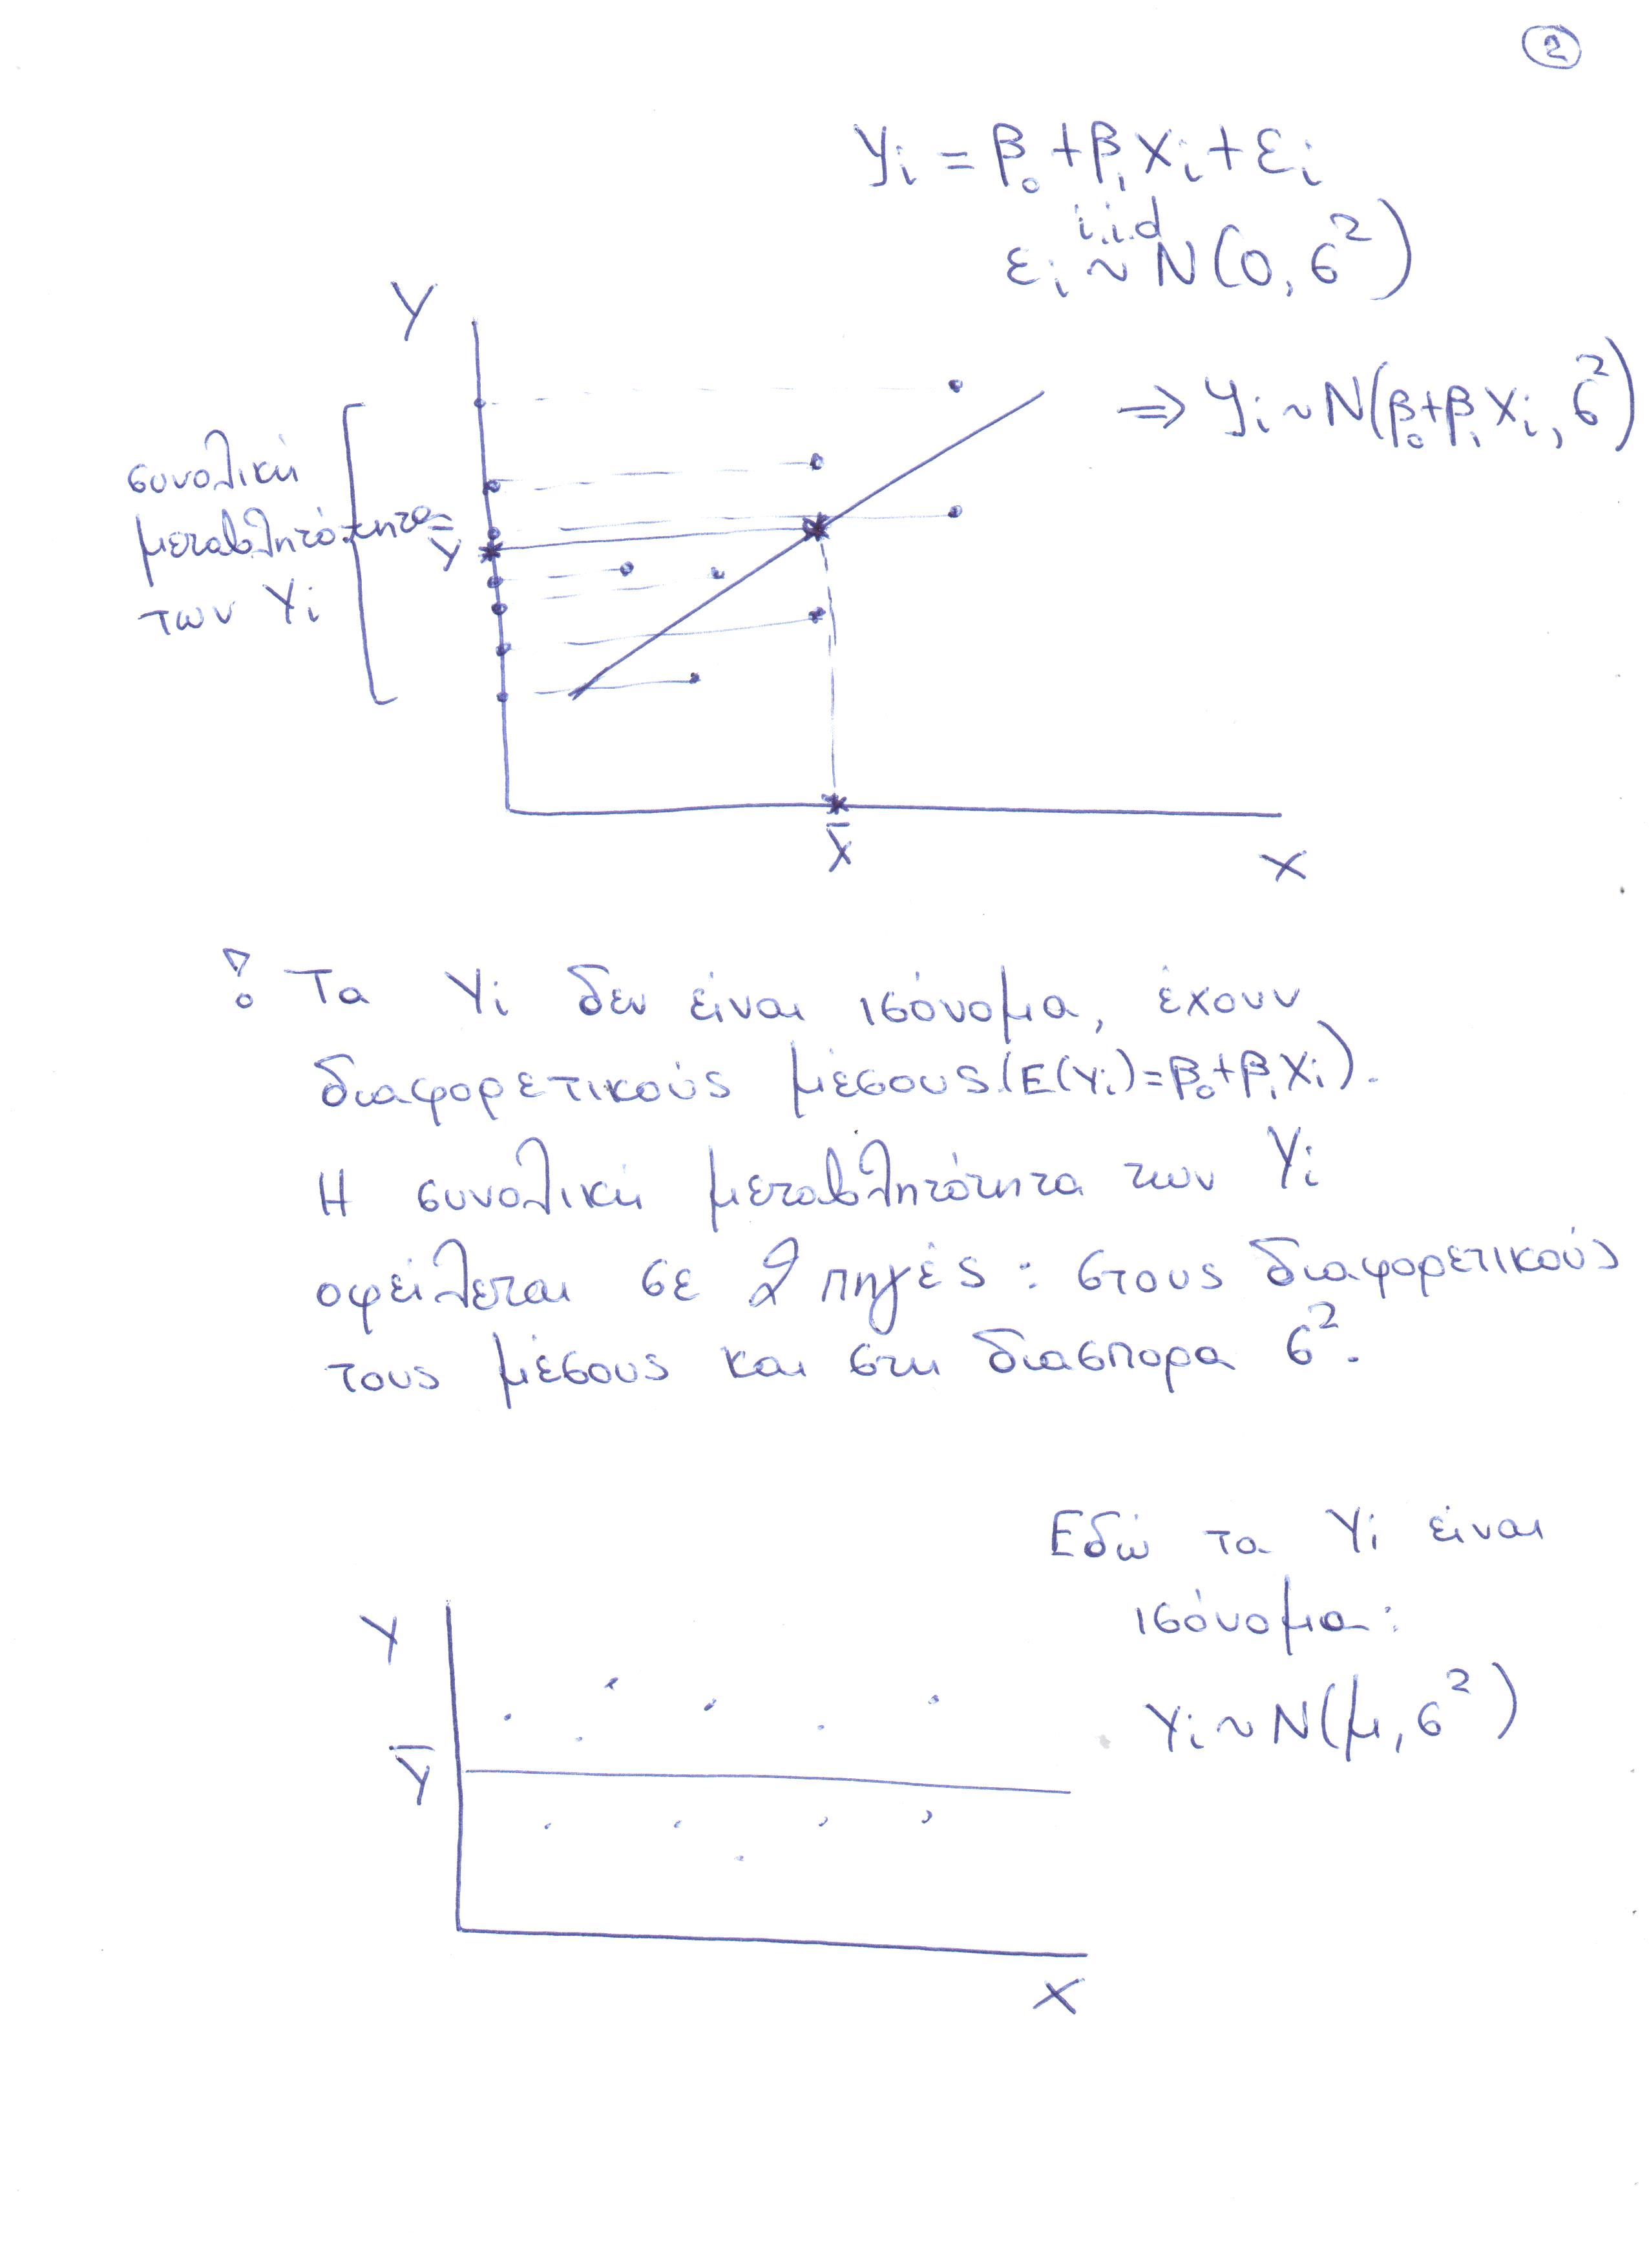 2
yᵢ = β₀ + β₁xᵢ + εᵢ
i.i.d
εᵢ ~ N(0, σ²)
Y
⇒ yᵢ ~ N(β₀+β₁xᵢ, σ²)
συνολική
μεταβλητότητα
των Yᵢ
Ȳ
X̄
X
! Τα Yᵢ δεν είναι ισόνομα, έχουν
διαφορετικούς μέσους (E(Yᵢ)=β₀+β₁Xᵢ).
Η συνολική μεταβλητότητα των Yᵢ
οφείλεται σε 2 πηγές: στους διαφορετικούς
τους μέσους και στη διασπορα σ².
Εδώ τα Yᵢ είναι
ισόνομα:
Yᵢ ~ N(μ, σ²)
Y
Ȳ
X